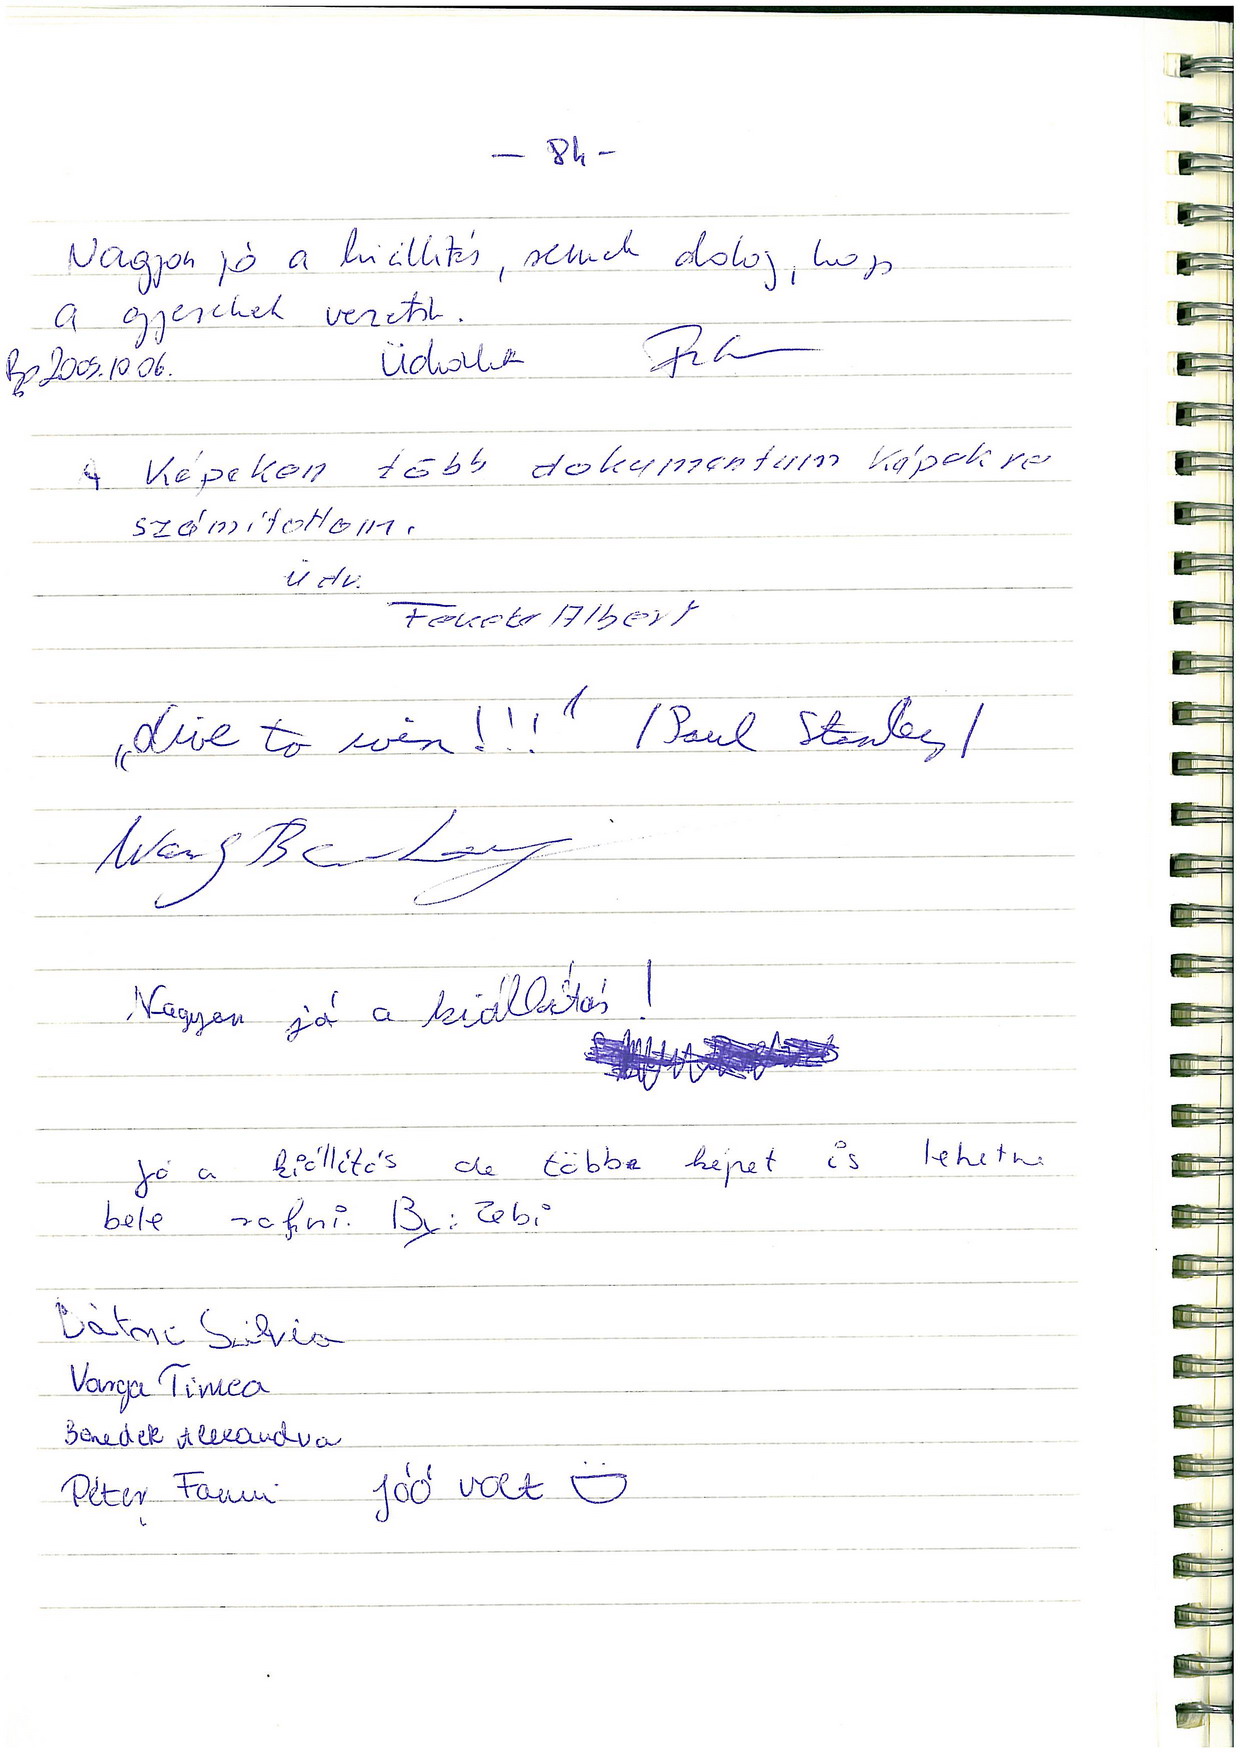 — 84 -
Nagyon jó a kiállítás, remek dolog, hogy
a gyerekek vezetik.
Bp 2009.10.06. Üdvözlet
A képeken több dokumentum képekre
számítottam.
üdv.
Fekete Albert
„Live to win!!!" /Paul Stanley/
Nagyon jó a kiállítás!
Jó a kiállítás de többe képet is lehetne
bele rakni. By: Zebi
Szilvia
Varga Timea
Benedek Alexandra
Péter Fanni jóó volt